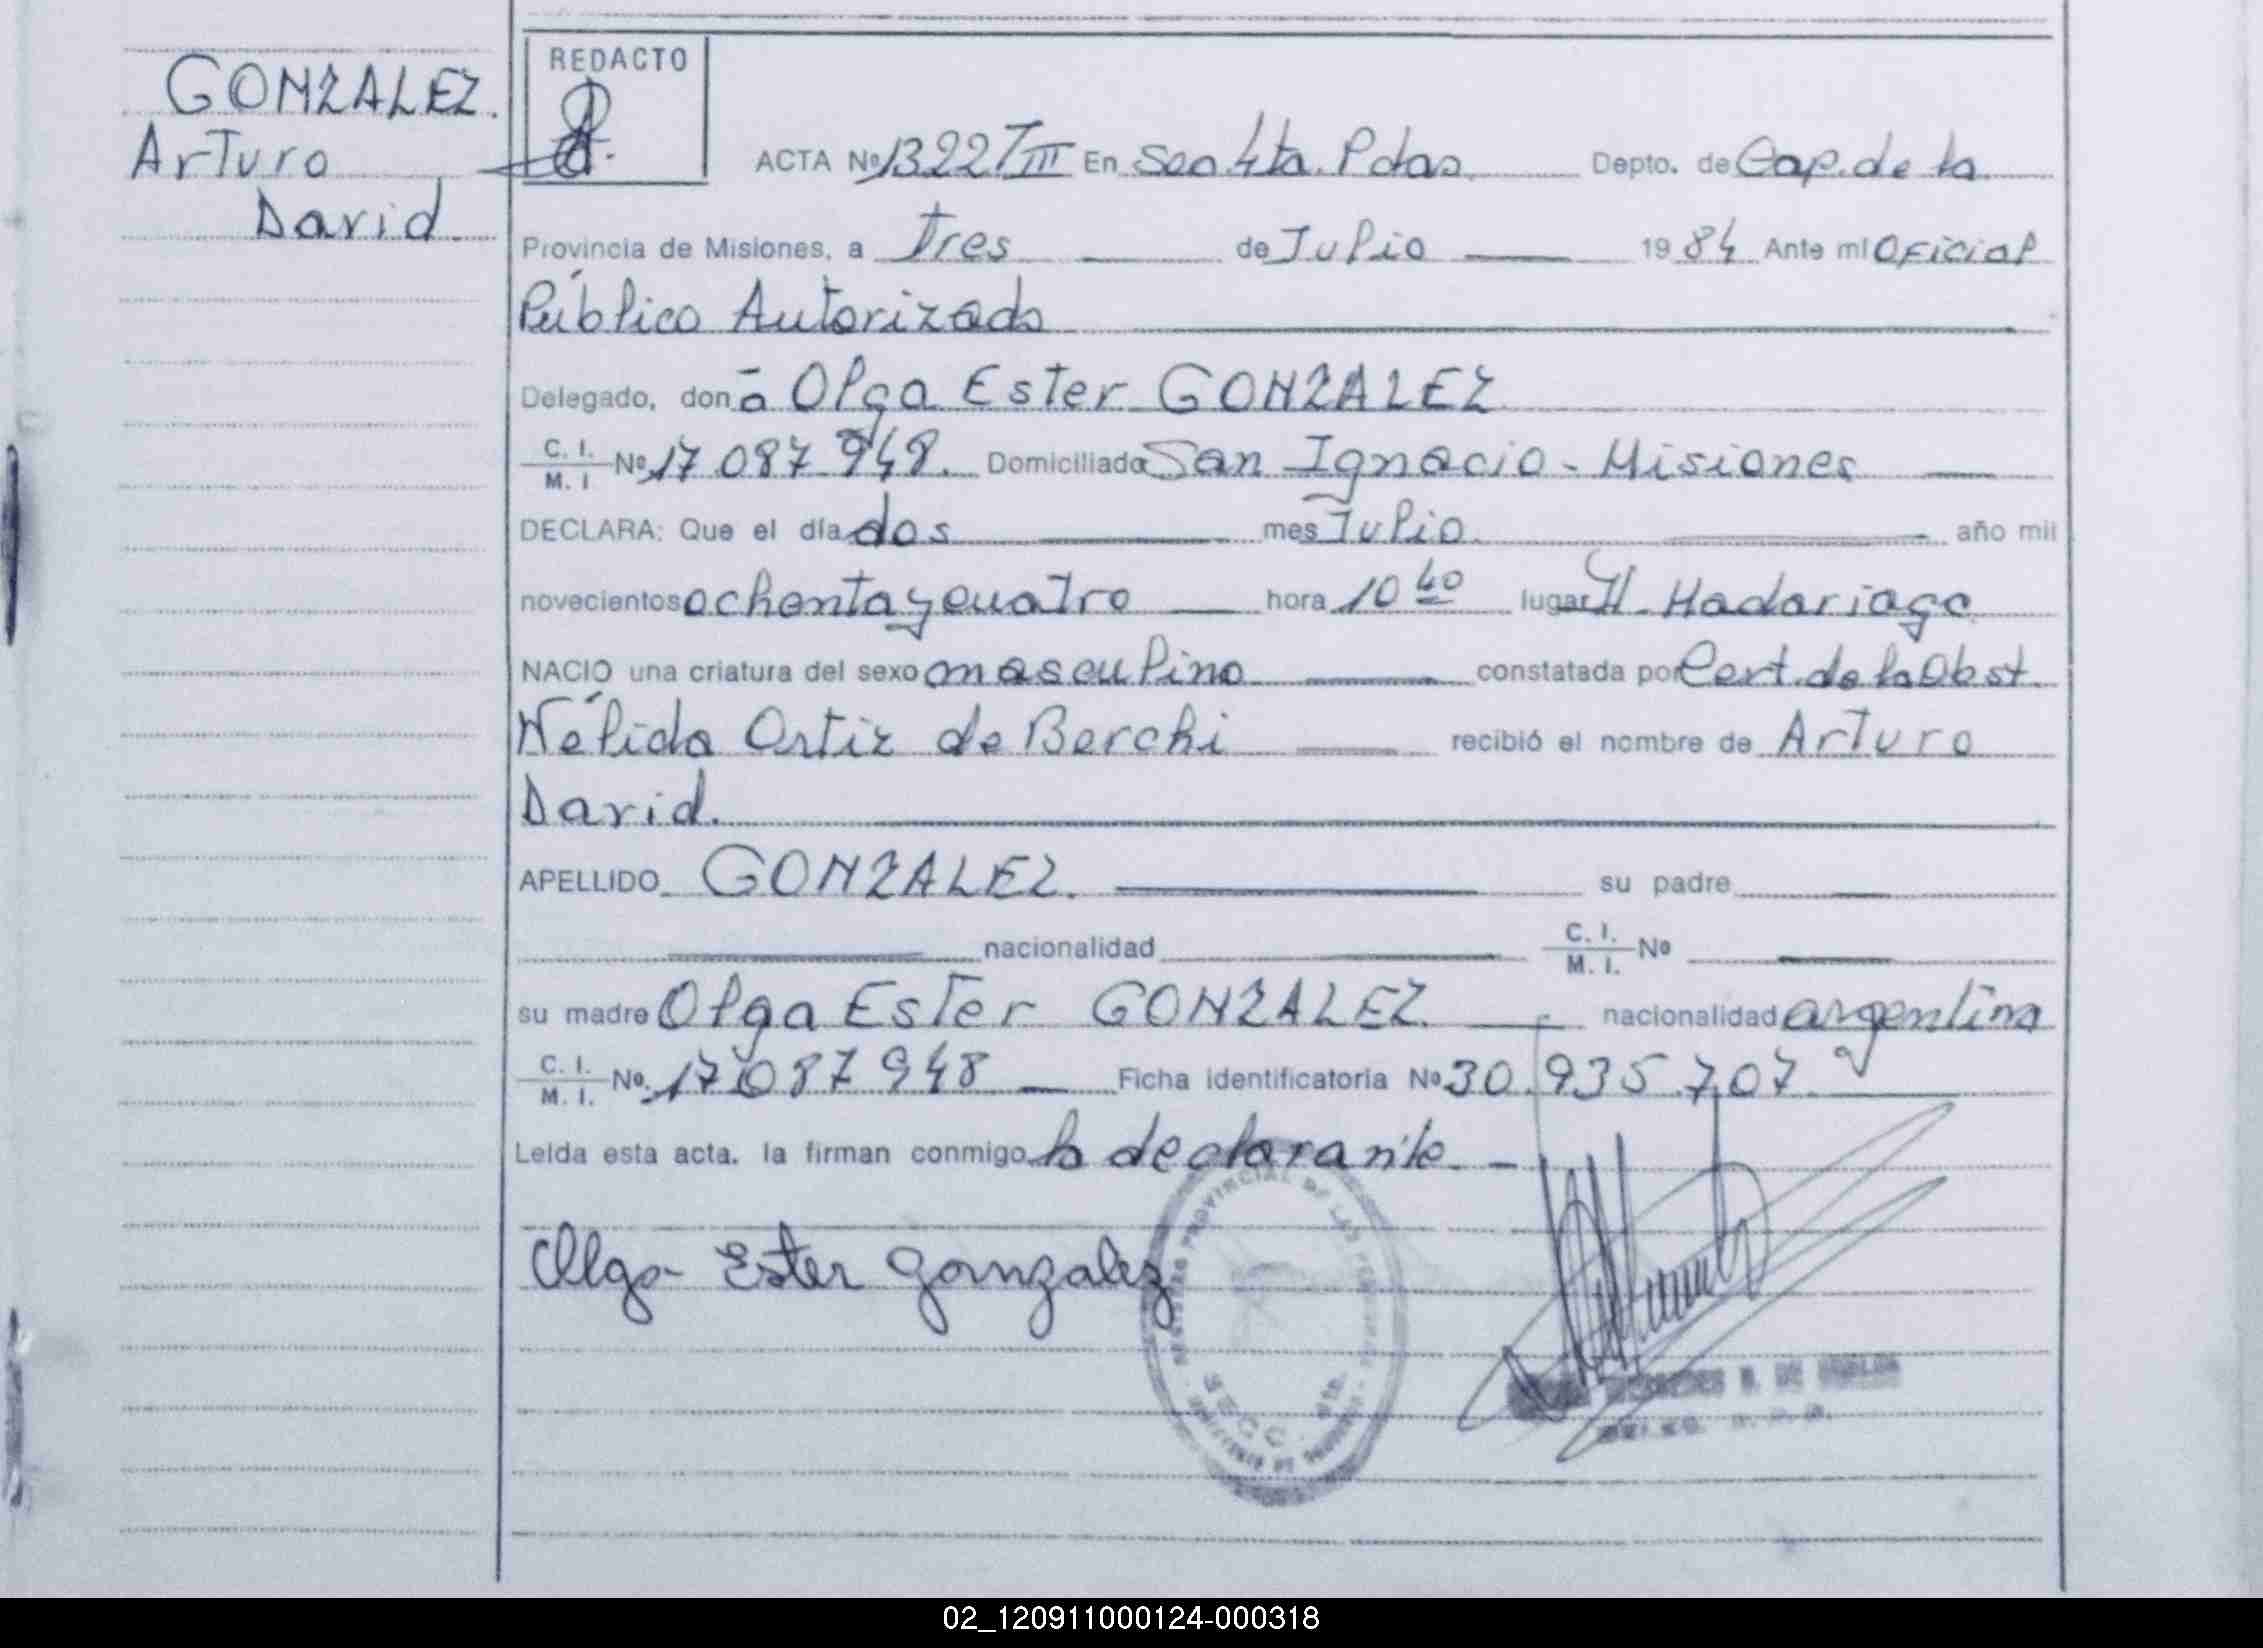 GONZALEZ.
Arturo
David
REDACTO
ACTA Nº 1322 T III En Secc 4ta. Pdas. Depto. de Cap. de la
Provincia de Misiones, a Tres de Julio 1984 Ante mí Oficial
Público Autorizado
Delegado, don ā Olga Ester GONZALEZ
C. I. M. I Nº 17 087 948. Domiciliado San Ignacio - Misiones
DECLARA: Que el día dos mes Julio año mil
novecientos ochenta y cuatro hora 10 40 lugar H. Madariaga
NACIO una criatura del sexo masculino constatada por Cert. de la Obst.
Nélida Ortiz de Berchi recibió el nombre de Arturo
David.
APELLIDO GONZALEZ. su padre
nacionalidad C. I. M. I. Nº
su madre Olga Ester GONZALEZ nacionalidad argentina
C. I. M. I. Nº. 17 087 948 Ficha identificatoria Nº 30.935.707
Leída esta acta. la firman conmigo la declarante.
Olga Ester Gonzalez
PROVINCIAL DE LAS PERSONAS
SECC. 4ta.
02_120911000124-000318